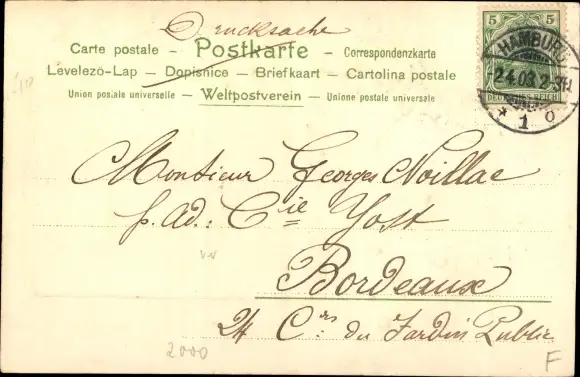 Drucksache
Carte postale – Postkarte – Correspondenzkarte
Levelező-Lap – Dopisnice – Briefkaart – Cartolina postale
Union postale universelle – Weltpostverein – Unione postale universale
5 5
DEUTSCHES REICH
HAMBURG
2.4.03.2-3N.
* 1 o
Monsieur Georges Noillac
p. Ad.: Cie Yost
Bordeaux
24 Crs: du Jardin Public
2000
F